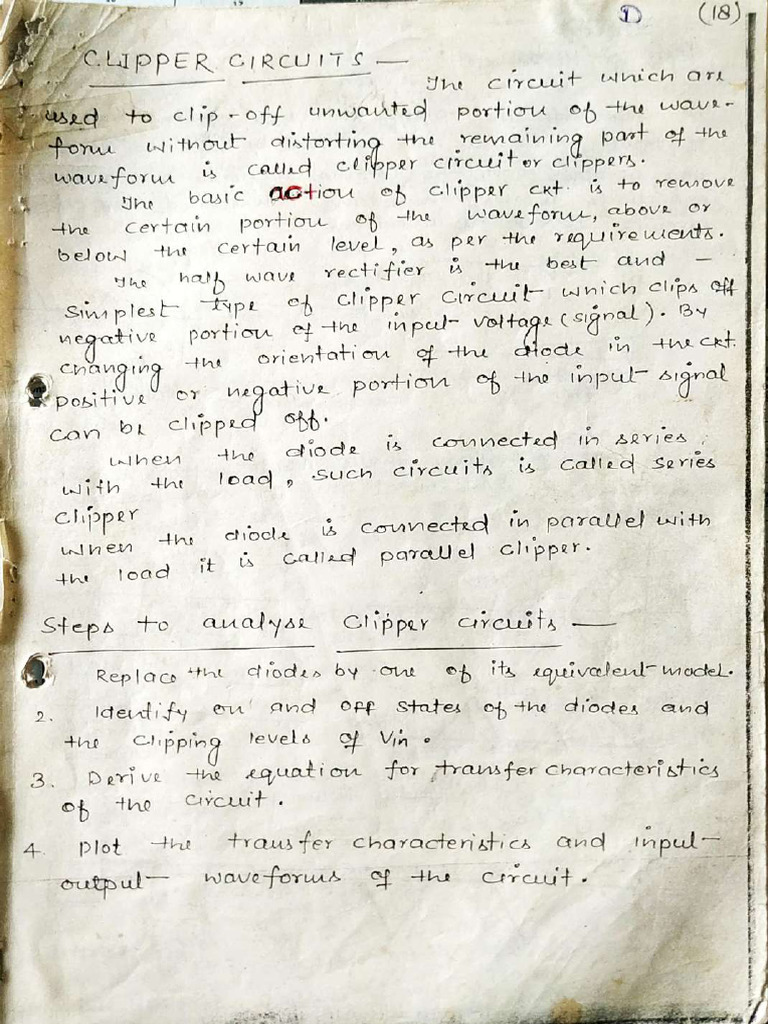 ① (18)
CLIPPER CIRCUITS —
The circuit which are
used to clip-off unwanted portion of the wave-
form without distorting the remaining part of the
waveform is called clipper circuit or clippers.
The basic action of clipper ckt. is to remove
the certain portion of the waveform, above or
below the certain level, as per the requirements.
The half wave rectifier is the best and —
simplest type of clipper circuit which clips off
negative portion of the input voltage (signal). By
changing the orientation of the diode in the ckt.
positive or negative portion of the input signal
can be clipped off.
When the diode is connected in series
with the load, such circuits is called series
clipper
when the diode is connected in parallel with
the load it is called parallel clipper.
Steps to analyse Clipper circuits —
Replace the diodes by one of its equivalent model.
2. Identify on and off states of the diodes and
the clipping levels of Vin.
3. Derive the equation for transfer characteristics
of the circuit.
4. Plot the transfer characteristics and input
output waveforms of the circuit.